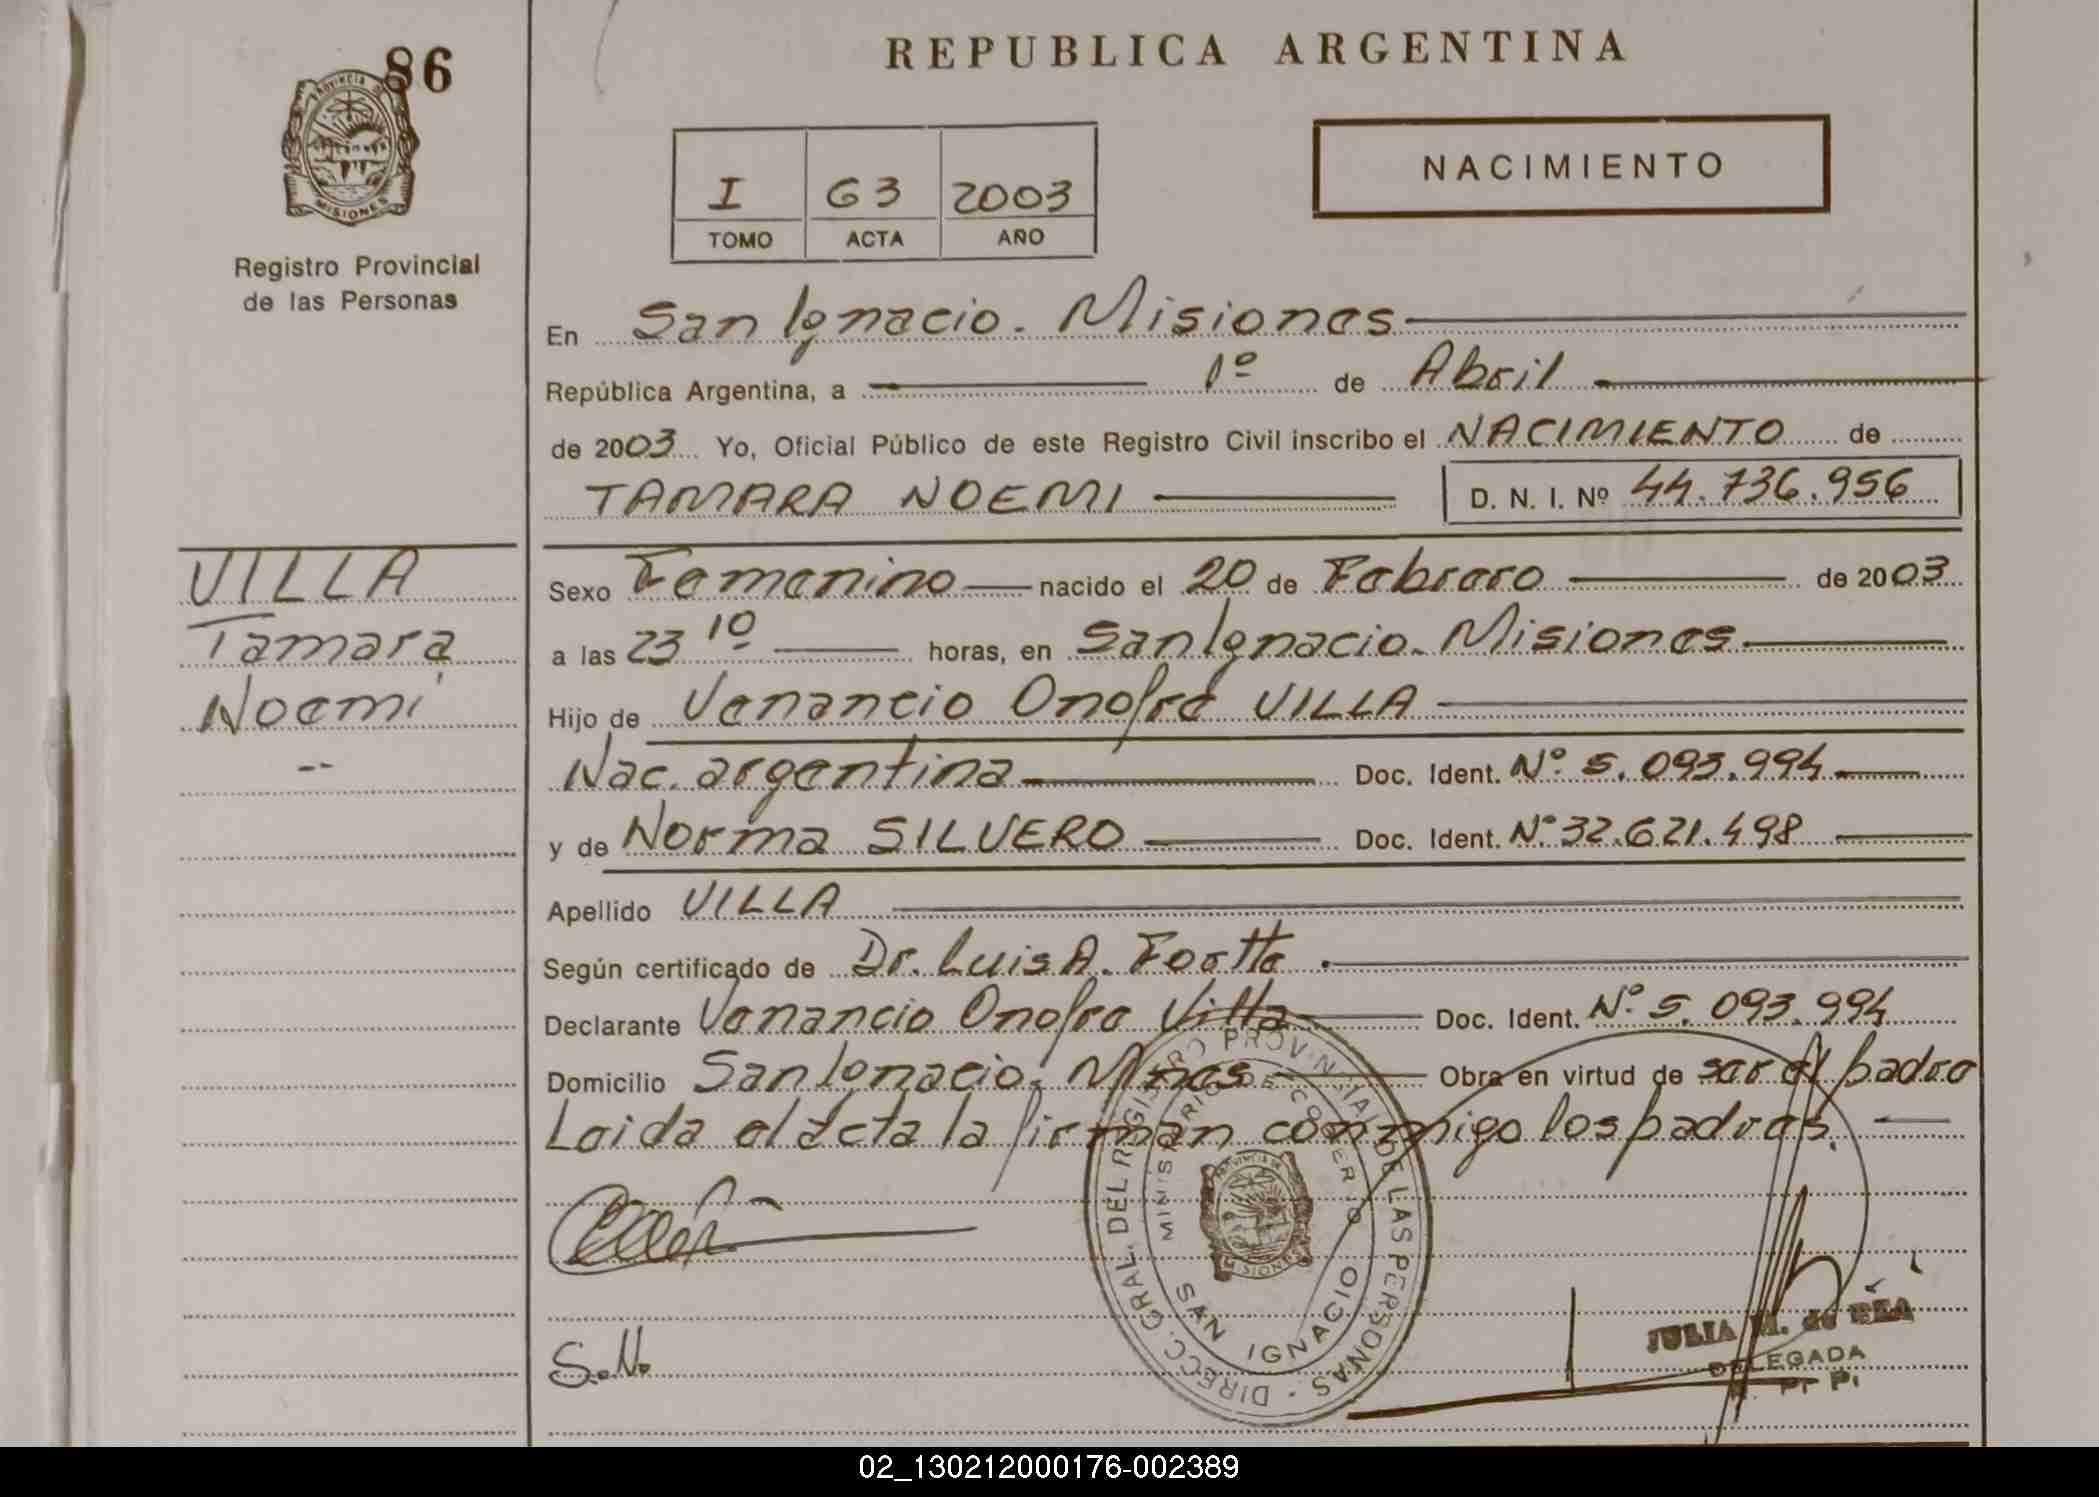 86
REPUBLICA ARGENTINA
PROVINCIA DE
MISIONES
Registro Provincial
de las Personas
I 63 2003
TOMO ACTA AÑO
NACIMIENTO
En San Ignacio. Misiones
República Argentina, a 1º de Abril
de 2003 Yo, Oficial Público de este Registro Civil inscribo el NACIMIENTO de
TAMARA NOEMI D. N. I. Nº 44.736.956
VILLA
Tamara
Noemí
--
Sexo Femenino nacido el 20 de Febrero de 2003
a las 23 10 horas, en San Ignacio. Misiones
Hijo de Venancio Onofre VILLA
Nac. argentina Doc. Ident. Nº 5.093.994
y de Norma SILVERO Doc. Ident. Nº 32.621.498
Apellido VILLA
Según certificado de Dr. Luis A.
Declarante Venancio Onofre Villa Doc. Ident. Nº 5.093.994
Domicilio San Ignacio. Mnes Obra en virtud de ser el padre
Leida el acta la firman conmigo los padres.
S.N.
DIRECC. GRAL. DEL REGISTRO PROVINCIAL DE LAS PERSONAS -
MINISTERIO DE GOBIERNO
SAN IGNACIO
PROVINCIA DE
MISIONES
JULIA M. de
DELEGADA
02_130212000176-002389